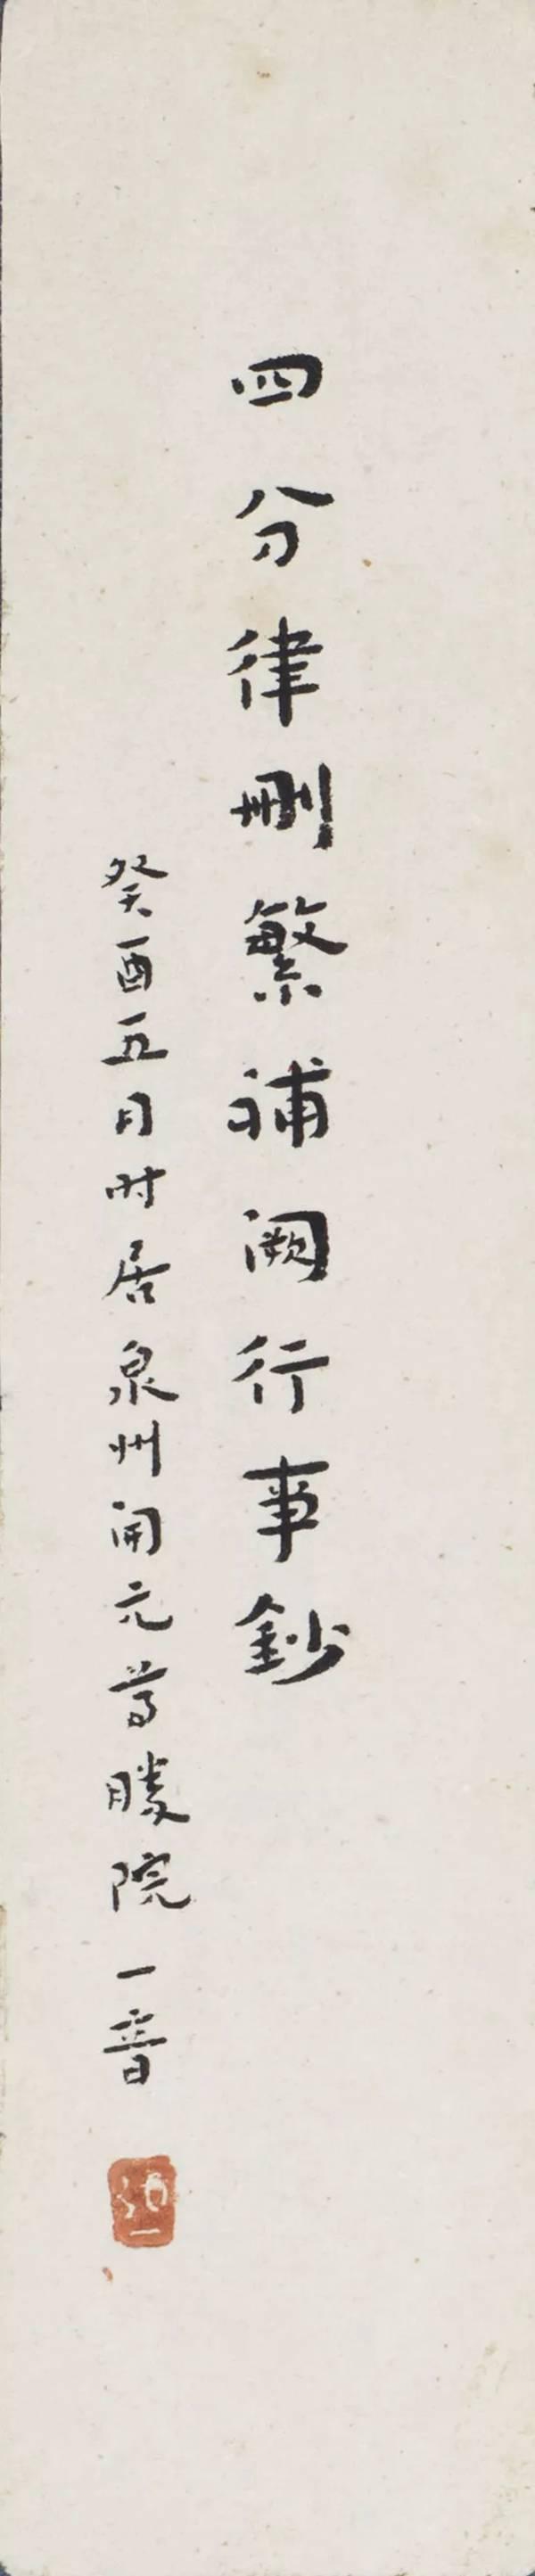 四分律刪繁補闕行事鈔
癸酉五月时居泉州開元尊勝院一音